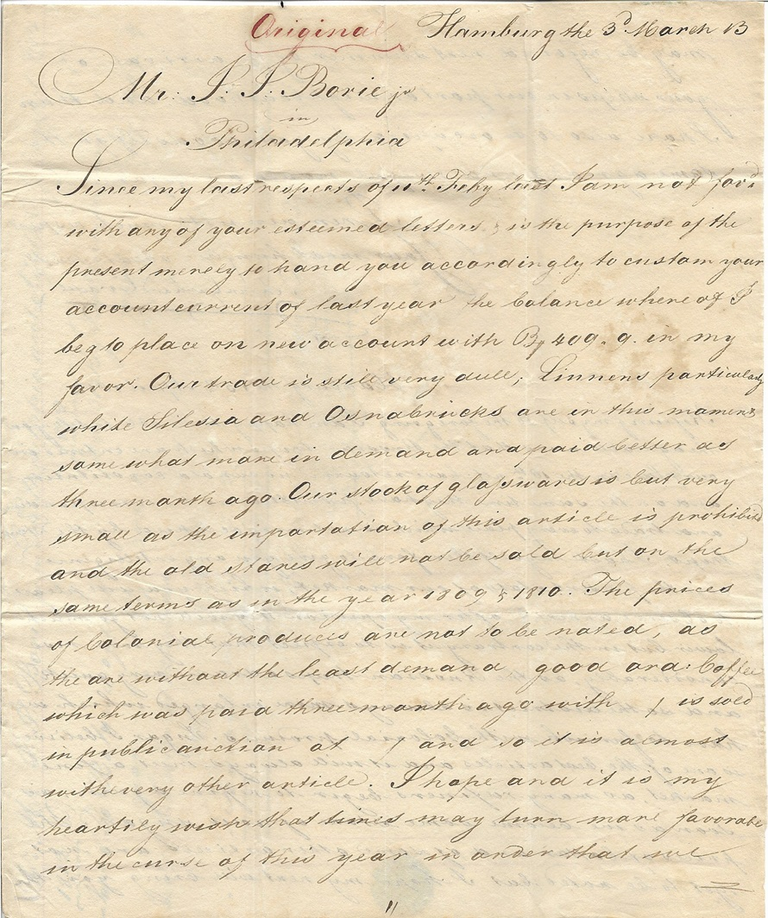 Original Hamburg the 3d March 13
Mr. J. J. Borie jr
in
Philadelphia
Since my last respects of 11th Feby last I am not fav'd
with any of your esteemed letters & is the purpose of the
present merely to hand you accordingly to custom your
account current of last year the balance where of I
beg to place on new account with 409. 9. in my
favor. Our trade is still very dull; Linnens particularly
white Silesia and Osnabricks are in this moment
some what more in demand and paid better as
three month ago. Our stock of glasswares is but very
small as the importation of this article is prohibited
and the old stores will not be sold but on the
same terms as in the year 1809 & 1810. The prices
of Colonial produces are not to be noted, as
the are without the least demand good ord: Coffee
which was paid three month ago with is sold
in public auction at and so it is almost
with every other article. I hope and it is my
heartily wish that times may turn more favorable
in the curse of this year in order that we